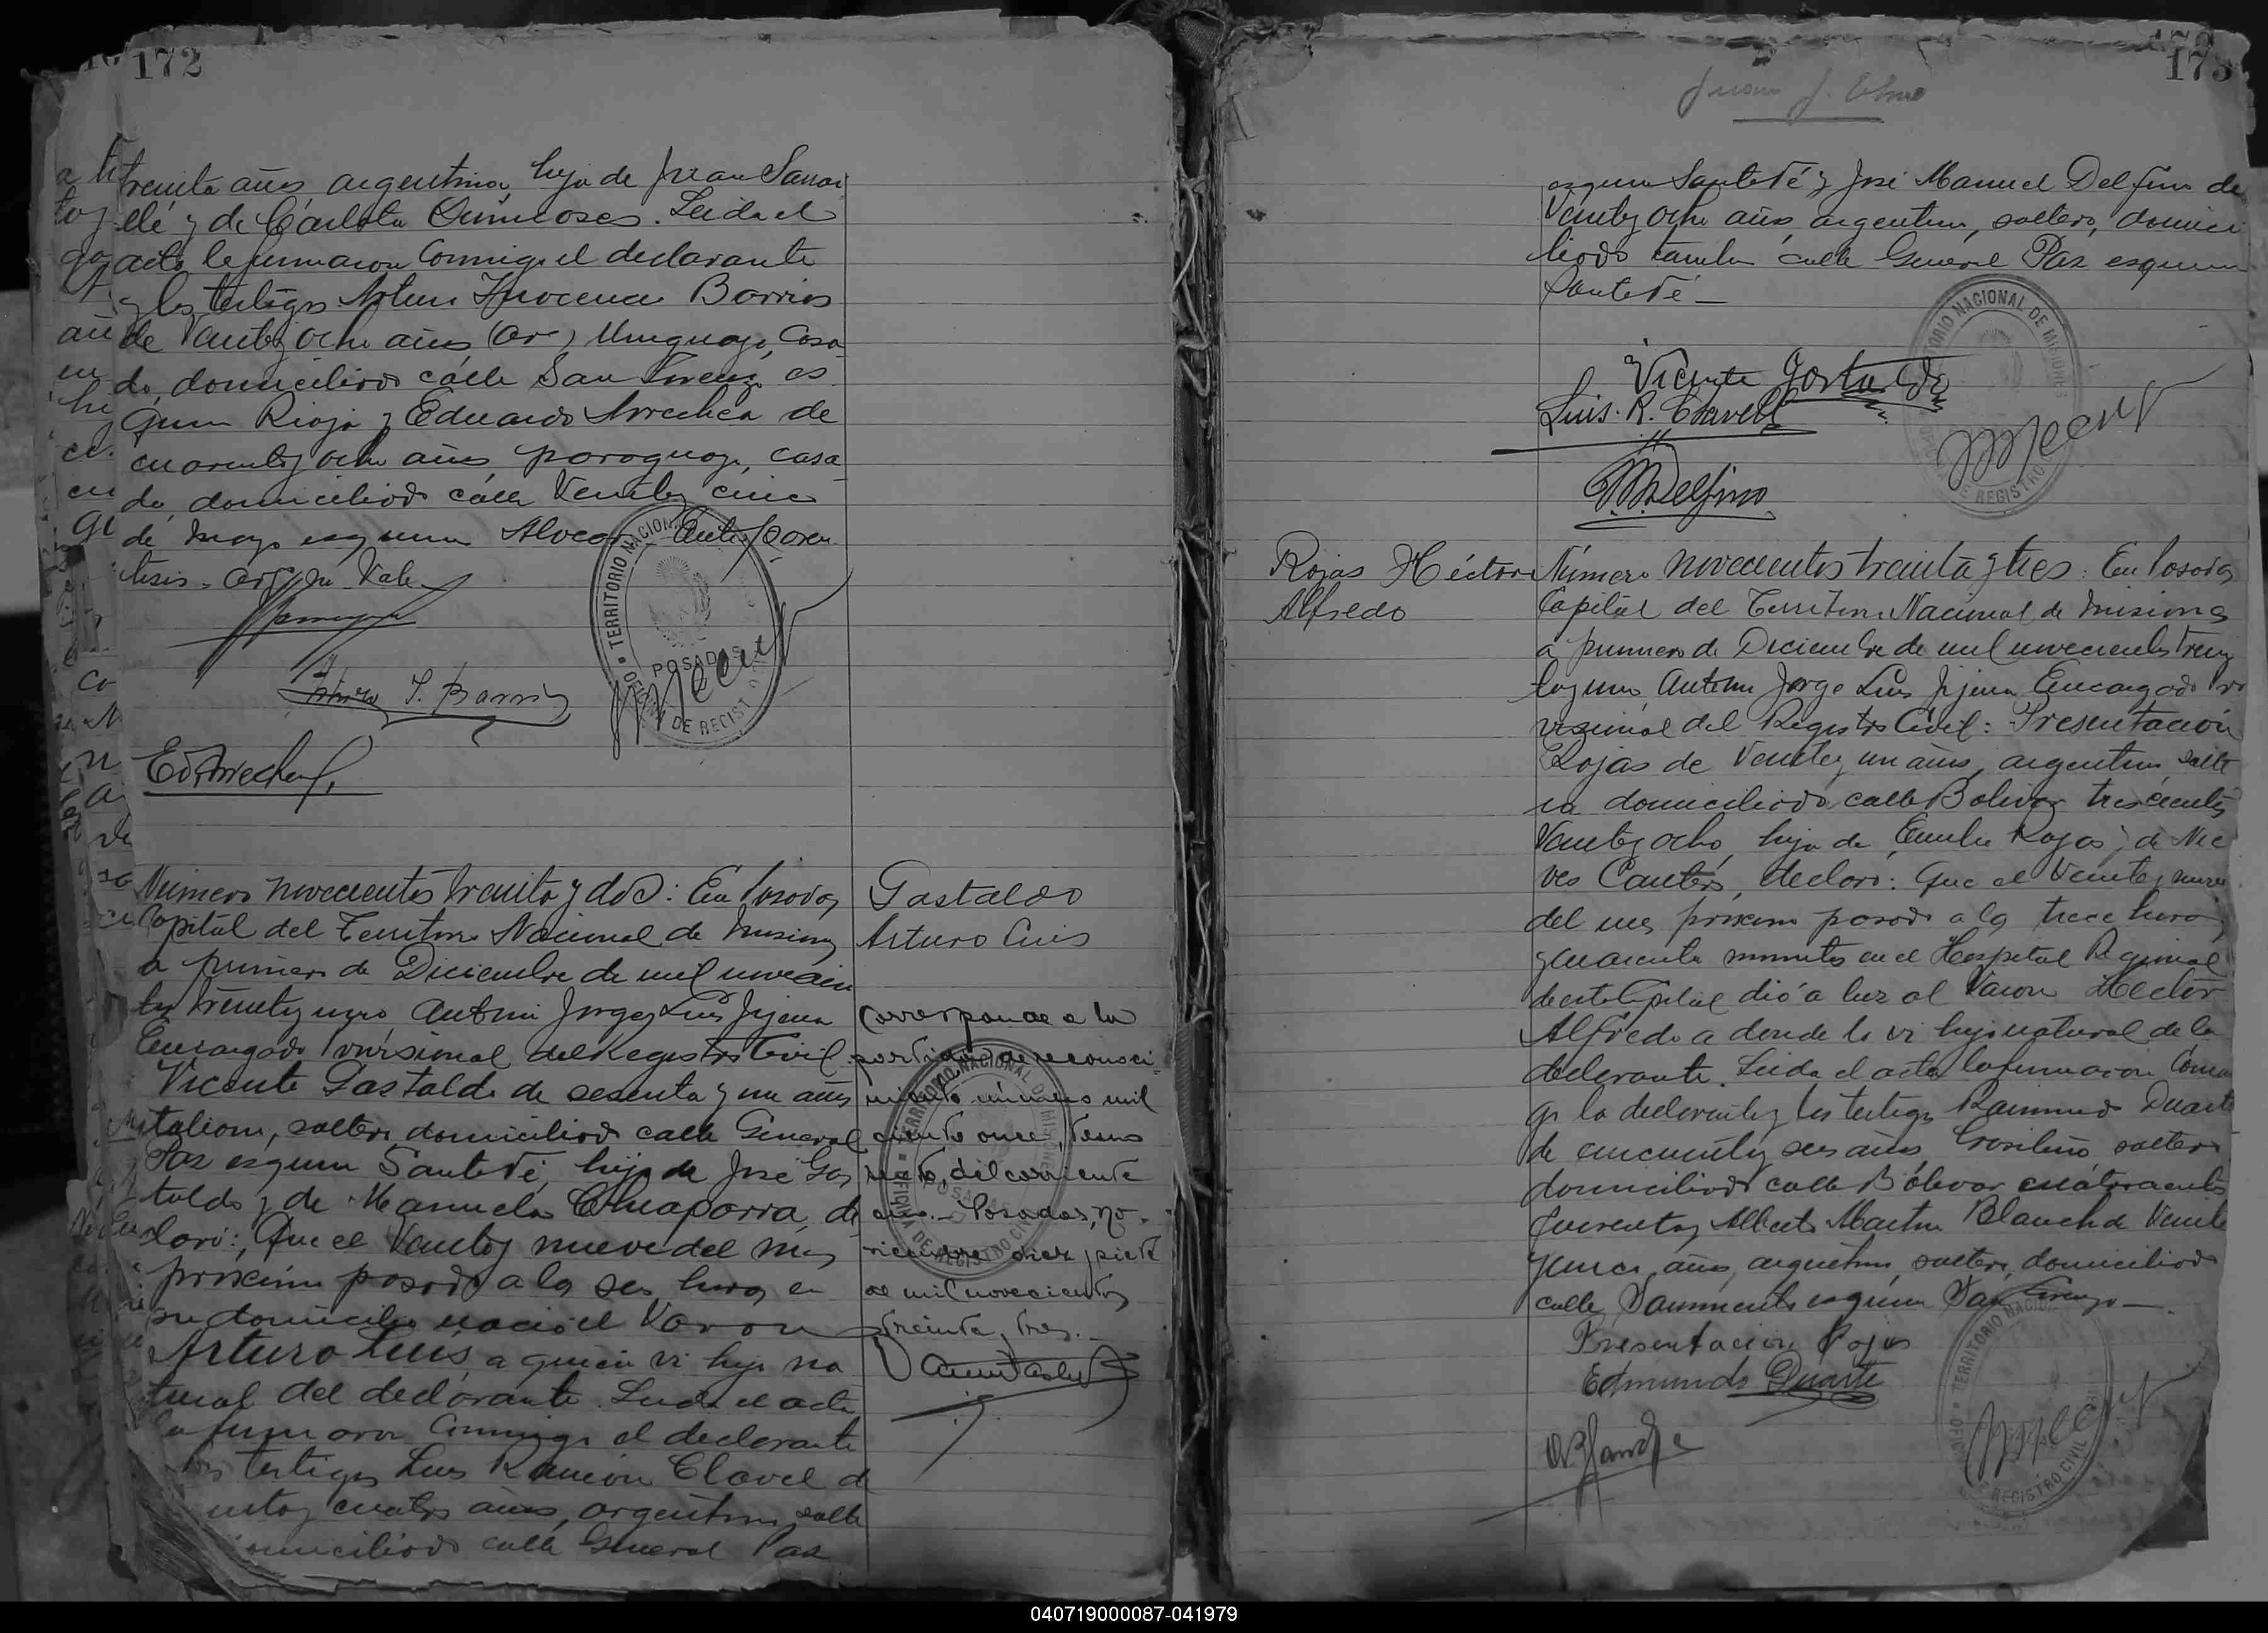 172
treinta años argentina, hija de Juan
y de Carlota Quiñoses. Leida el
acta la firmaron conmigo el declarante
y los testigos Arturo Inocencio Barrios
de veinte y ocho años (or) Uruguayo, casa
do, domiciliado calle San Lorenzo es
quina Rioja y Eduardo Arrechea de
cuarenta y ocho años, paraguayo, casa
do, domiciliado calle Veinte y cinco
de Mayo esquina Alvear Entre paren
tesis = or) no Vale
Arturo I. Barrios
Ed. Arrechea
TERRITORIO NACIONAL
POSADAS
OFICINA DE REGISTRO
Número novecientos treinta y dos: En Posadas
Capital del Territorio Nacional de Misiones
a primero de Diciembre de mil novecien
tos treinta y uno, Ante mi Jorge Luis Jijena
Encargado Provisional del Registro Civil
Vicente Gastaldo de sesenta y un años
italiano, soltero, domiciliado calle General
Paz esquina Santa Fé, hijo de José Gas
taldo y de Manuela Chiaparra, de
claró: Que el Veinte y nueve del mes
próximo pasado a las seis horas en
su domicilio nació el Varon
Arturo Luis, a quien vi hijo na
tural del declarante. Leida el acta
la firmaron conmigo el declarante
los testigos Luis Ramón Clavel de
cuatro años, argentino, solte
domiciliado calle General Paz
Gastaldo
Arturo Luis
Corresponde a la
partida de reconoci
miento número mil
ciento once, tomo
del corriente
año.- Posadas, no-
viembre diez y siete
de mil novecientos
treinta y tres.-
173
Juan J.
esquina Santa Fé y José Manuel Delfino de
Veinte y ocho años, argentino, soltero, domici
liado tambien calle General Paz esquina
Santa Fé -
Vicente Gastaldo
Luis. R. Clavel
JMDelfino
TERRITORIO NACIONAL DE MISIONES
Rojas Héctor
Alfredo
Número novecientos treinta y tres: En Posadas
Capital del Territorio Nacional de Misiones
a primero de Diciembre de mil novecientos trein
ta y uno, Ante mi Jorge Luis Jijena Encargado Pro
visional del Registro Civil: Presentación
Rojas de Veinte y un años, argentina, solte
ra domiciliada calle Bolivar trescientos
Veinte y ocho, hija de Emilio Rojas y de Nie
ves Cantero, declaró: Que el Veinte y nueve
del mes próximo pasado a las trece horas
y cuarenta minutos en el Hospital Regional
de esta Capital dió a luz al Varon Hector
Alfredo a donde lo vi hijo natural de la
declarante. Leida el acta la firmaron conmi
go la declarante y los testigos Raimundo Duarte
de cincuenta y seis años, brasileño, soltero
domiciliado calle Bolivar cuatrocientos
cuarenta y Alberto Martin Blanch de Veinte
y años, argentino, soltero, domiciliado
calle Sarmiento esquina San Lorenzo -
Presentación Rojas
Edmundo Duarte
TERRITORIO NACIONAL
REGISTRO CIVIL
040719000087-041979